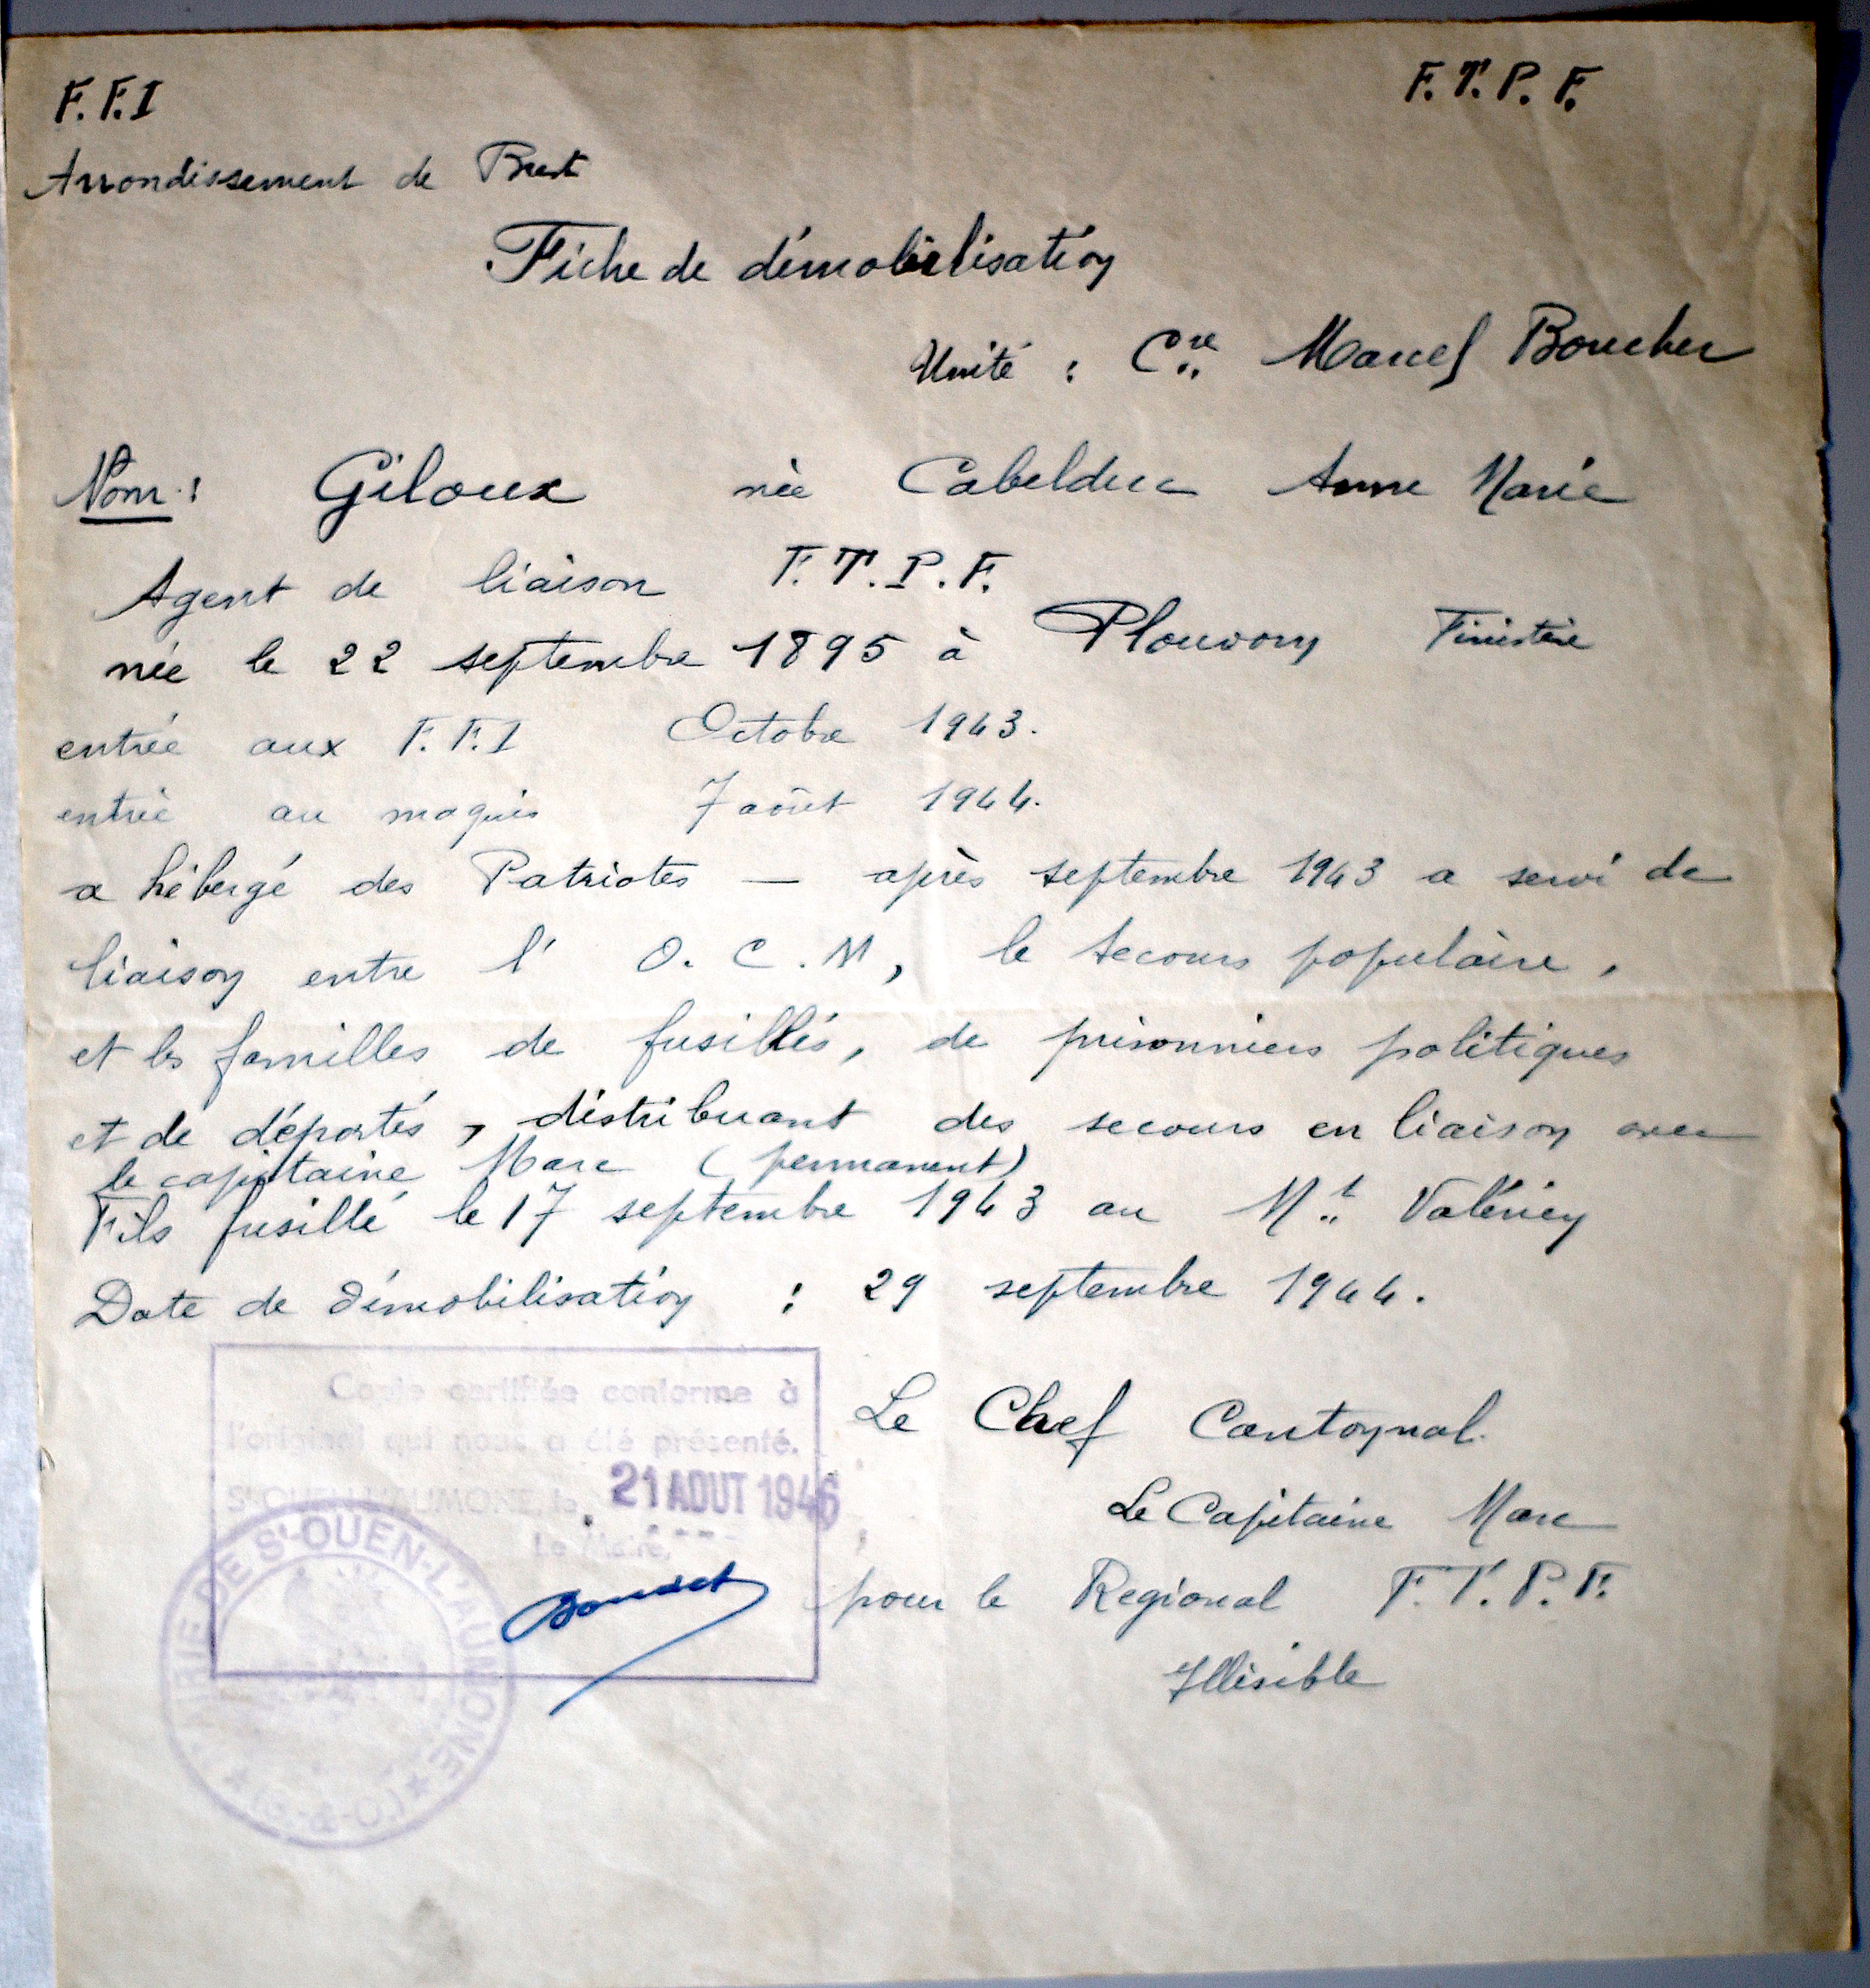 F.F.I
F.T.P.F.
Arrondissement de Brest
Fiche de démobilisation
Unité : Cie Marcel Boucher
Nom : Giloux née Cabelduc Anne Marie
Agent de liaison F.T.P.F.
née le 22 septembre 1895 à Plouvorn Finistère
entrée aux F.F.I Octobre 1943.
entrée au maquis 7 août 1944.
a hébergé des Patriotes — après septembre 1943 a servi de
liaison entre l' O.C.M, le secours populaire,
et les familles de fusillés, de prisonniers politiques
et de déportés, distribuant des secours en liaison avec
le capitaine Marc (permanent)
Fils fusillé le 17 septembre 1943 au Mt Valérien
Date de démobilisation : 29 septembre 1944.
Copie certifiée conforme à
l'original qui nous a été présenté.
St-OUEN-L'AUMONE, le 21 AOUT 1946
Le Maire,
MAIRIE DE St-OUEN-L'AUMONE (S.-&-O.)
Le Chef Cantonnal.
Le Capitaine Marc
pour le Regional F.T.P.F.
Illisible